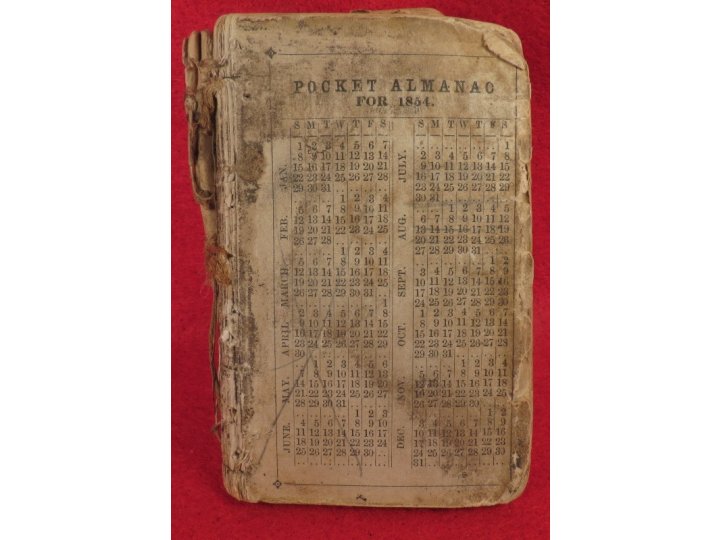 POCKET ALMANAC
FOR 1854.
S M T W T F S
JAN.
1 2 3 4 5 6 7
8 9 10 11 12 13 14
15 16 17 18 19 20 21
22 23 24 25 26 27 28
29 30 31
FEB.
1 2 3 4
5 6 7 8 9 10 11
12 13 14 15 16 17 18
19 20 21 22 23 24 25
26 27 28
MARCH
1 2 3 4
5 6 7 8 9 10 11
12 13 14 15 16 17 18
19 20 21 22 23 24 25
26 27 28 29 30 31
APRIL
1
2 3 4 5 6 7 8
9 10 11 12 13 14 15
16 17 18 19 20 21 22
23 24 25 26 27 28 29
30
MAY.
1 2 3 4 5 6
7 8 9 10 11 12 13
14 15 16 17 18 19 20
21 22 23 24 25 26 27
28 29 30 31
JUNE.
1 2 3
4 5 6 7 8 9 10
11 12 13 14 15 16 17
18 19 20 21 22 23 24
25 26 27 28 29 30
S M T W T F S
JULY.
1
2 3 4 5 6 7 8
9 10 11 12 13 14 15
16 17 18 19 20 21 22
23 24 25 26 27 28 29
30 31
AUG.
1 2 3 4 5
6 7 8 9 10 11 12
13 14 15 16 17 18 19
20 21 22 23 24 25 26
27 28 29 30 31
SEPT.
1 2
3 4 5 6 7 8 9
10 11 12 13 14 15 16
17 18 19 20 21 22 23
24 25 26 27 28 29 30
OCT.
1 2 3 4 5 6 7
8 9 10 11 12 13 14
15 16 17 18 19 20 21
22 23 24 25 26 27 28
29 30 31
NOV.
1 2 3 4
5 6 7 8 9 10 11
12 13 14 15 16 17 18
19 20 21 22 23 24 25
26 27 28 29 30
DEC.
1 2
3 4 5 6 7 8 9
10 11 12 13 14 15 16
17 18 19 20 21 22 23
24 25 26 27 28 29 30
31